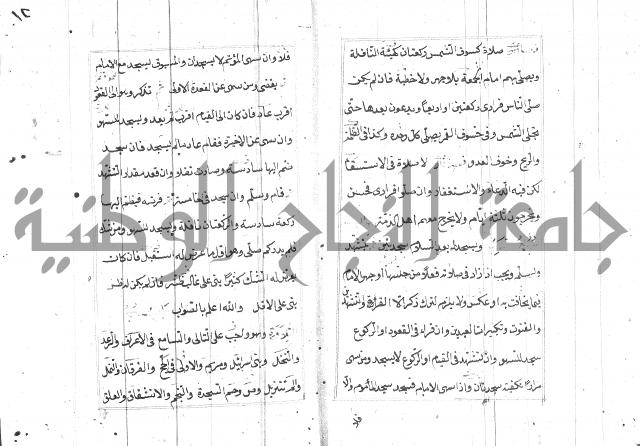 ١٢
صلاة كسوف الشمس ركعتان كهيئة النافلة
ويصلي بهم امام الجمعة بلا جهر ولا خطبة فان لم يكن
صلى الناس فرادى ركعتين او اربعا ويدعون بعدها حتى
تنجلي الشمس وفي خسوف القمر يصلي كل وحده وكذا في الظلمة
والريح وخوف العدو لا صلوة في الاستسقاء
لكن فيه الدعاء والاستغفار وان صلوا فرادى فحسن
ويخرجون ثلثة ايام ولا يخرج معهم اهل الذمة
ويسجد له بعد السلام سجدتين ويتشهد
ويسلم ويجب اذا زاد في صلوته فعلا من جنسها او جهر الامام
بما يخافت به او عكس ولا يلزم لترك ذكر الا القراءة والتشهدين
والقنوت وتكبيرات العيدين وان قراء في القعود او الركوع
سجد للسهو وان تشهد في القيام او الركوع لا يسجد ومن سهى
مرارا يكفيه سجدتان واذا سهى الامام فسجد سجد المأموم والا
فلا
فلا وان سهى المؤتم لا يسجدان والمسبوق يسجد مع الامام
يقضي ومن سهى عن القعدة الاولى تذكر وهو الى القعود
اقرب عاد فان كان الى القيام اقرب لم يعد ويسجد للسهو
وان سهى عن الاخيرة فقام عاد ما لم يسجد فان سجد
ضم اليها سادسة وصارت نفلا وان قعد مقدار التشهد
قام وسلم وان سجد في خامسة فرضه فيضم اليها
ركعة سادسة والركعتان نافلة ويسجد للسهو ومن شك
فلم يدر كم صلى وهو اول ما عرض له استقبل فان كان
يعرض له الشك كثيرا بنى على غالب ظنه فان لم يكن له ظن
بنى على الاقل والله اعلم بالصواب
وهو واجب على التالي والسامع في الاعراف والرعد
والنحل وبني اسرائيل ومريم والاولى في الحج والفرقان والنمل
والم تنزيل وص وحم السجدة والنجم والانشقاق والعلق
جامعة النجاح الوطنية